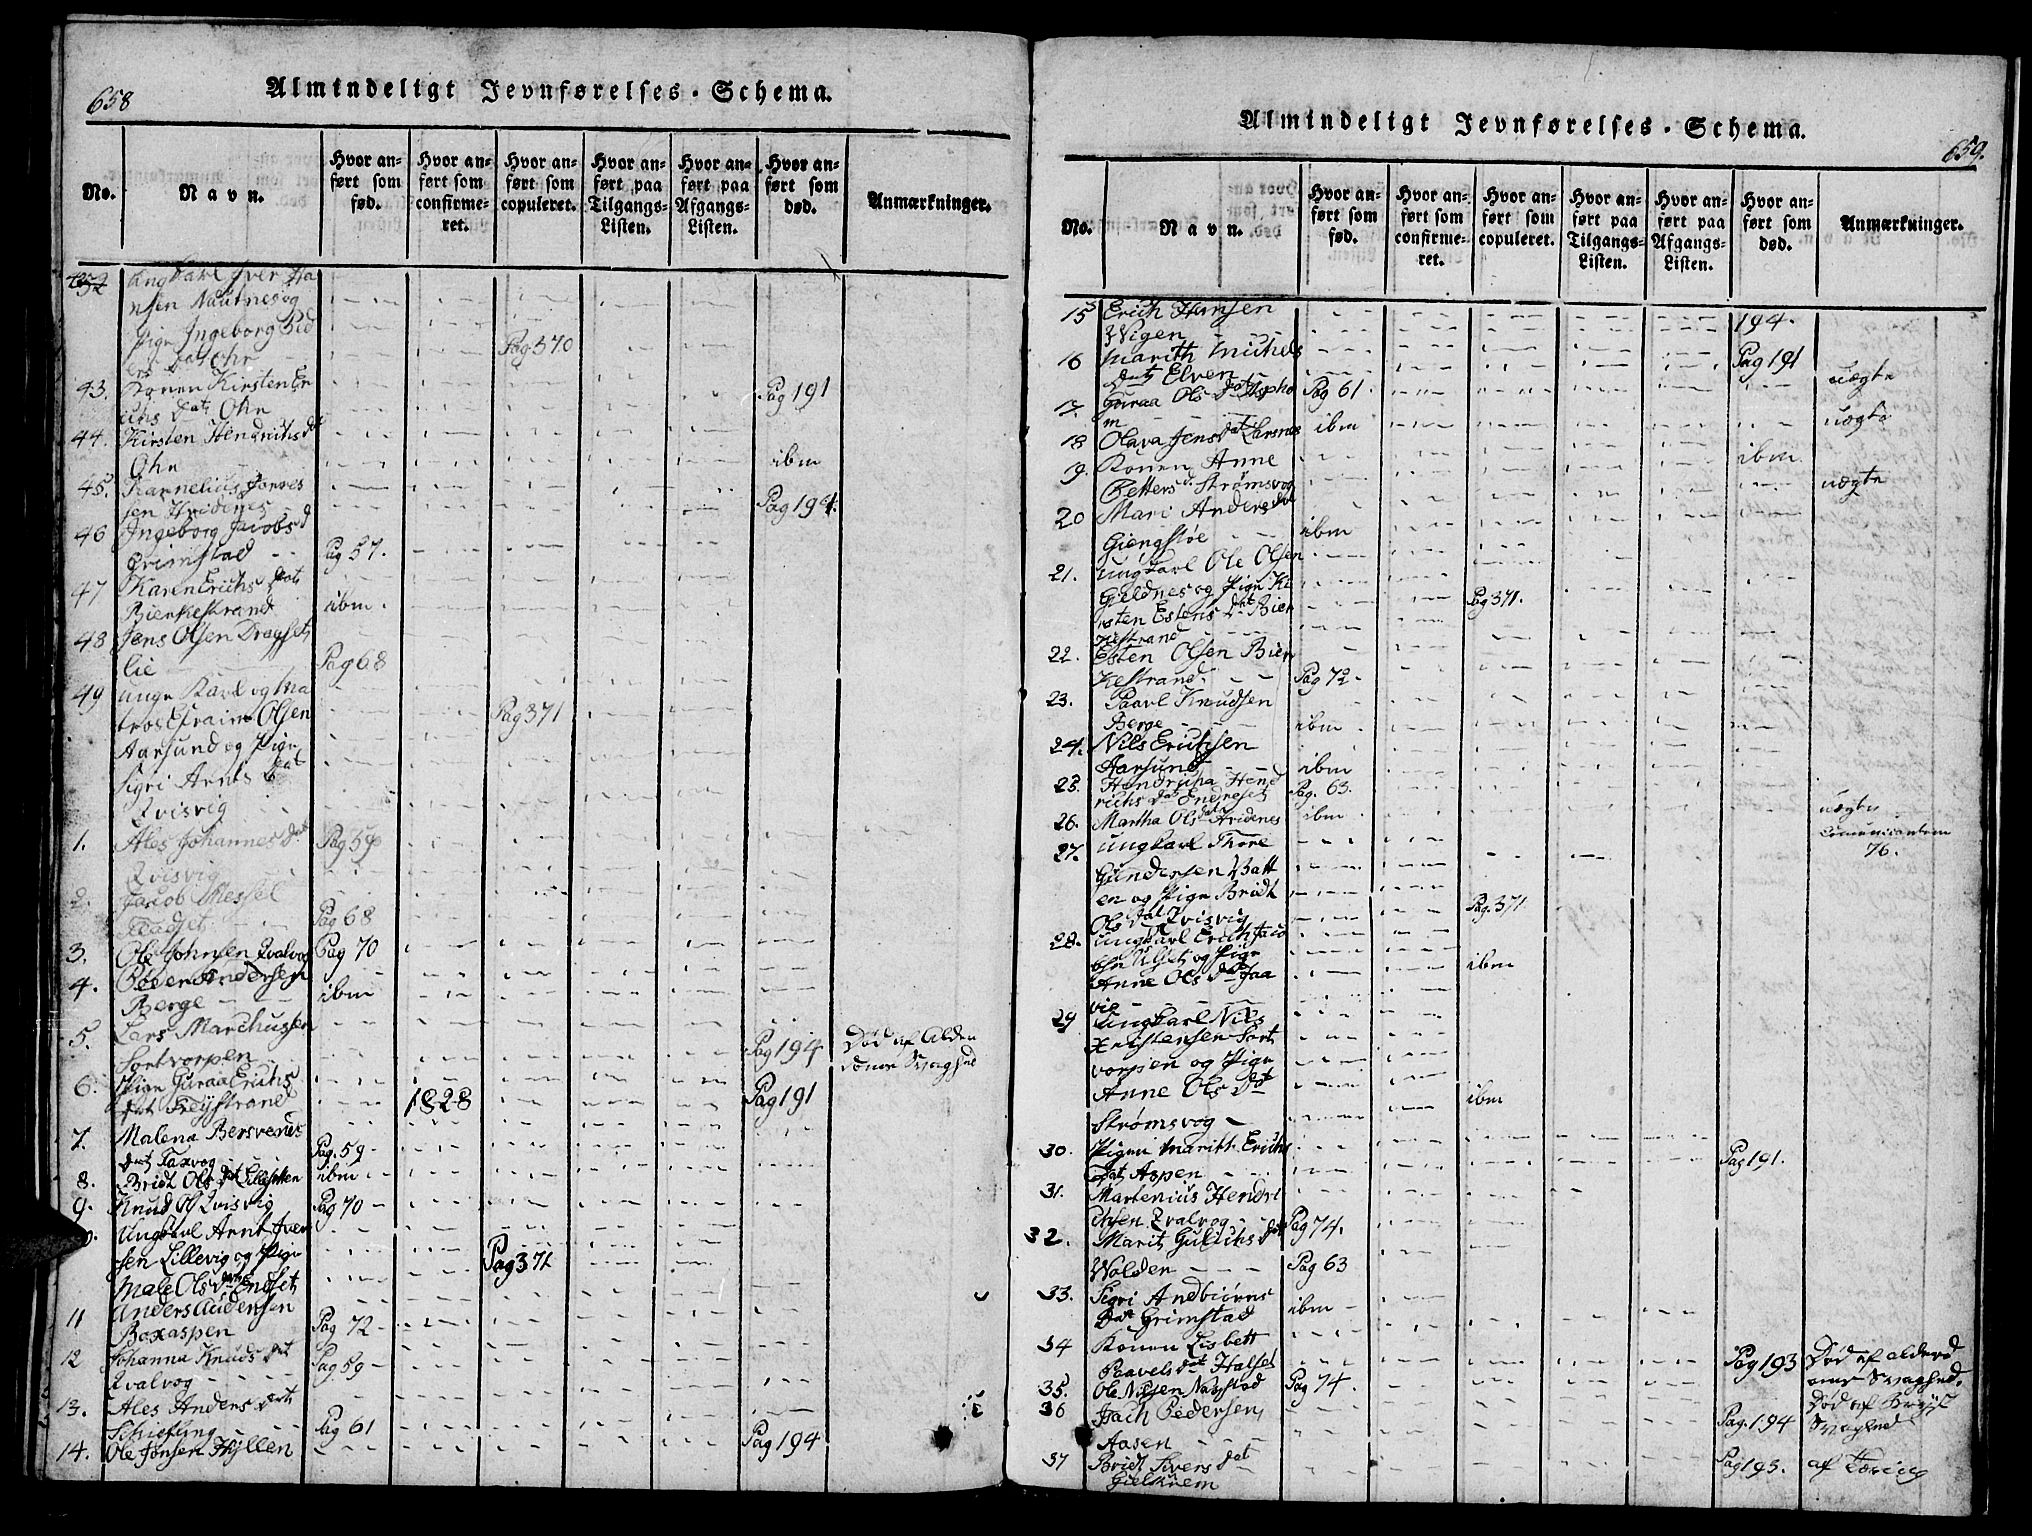 658
Almindeligt Jevnførelses-Schema.
No.
Navn.
Hvor anført som fød.
Hvor anført som confirmeret.
Hvor anført som copuleret.
Hvor anført paa Tilgangs-Listen.
Hvor anført paa Afgangs-Listen.
Hvor anført som død.
Anmærkninger.
Ungkarl Iver Ha
nsen Nautnes og
Pige Ingeborg Ped
ers Dat Ohr Pag 370
43. Konen Kirsten Er
ichs Dat Ohr Pag 191
44. Kirsten Hendrichs Dat
Ohr ibm
45. Karnelius
sen Pag 194.
46 Ingeborg Jacobs d
Grimstad Pag 57.
47 Karen Erichs Dat
Bierkestrand ibm.
48 Jens Olsen Dragset
lie Pag 68
49 unge Karl og Ma
tros Efraim Olsen Pag 371
Aarsund og Pige
Sigri Arnts Dat
Qvisvig
1. Ales Johannes Dat Pag 59
Qvisvig
2. Jacob Messel
Pag 68
3. Ole Johnsen Qvalvog Pag 70
4. Peder Andersen
Berge ibm
5. Lars Marchussen
Sortvorpen Pag 194 Død af Alder
domsSvaghed
6. Pige Guraa Erichs
Dat Reystrand 1828 Pag 191
7. Malena Bersvenes
Dat Taxvog Pag. 59
8. Bridt Ols Dat ibm
9. Knud Ols Qvisvig Pag 70
Ungkarl Arnt Iver
sen Lillevig og Pige Pag 371
Male Ols Dat Endset
11 Anders Audensen
Boxaspen Pag 72
12 Johanna Knuds Dat Pag 59
Qvalvog
13. Ales Anders Dat
Pag 61
14. Ole Jonsen Hyllen Pag 194
659.
Almindeligt Jevnførelses-Schema.
No.
Navn.
Hvor anført som fød.
Hvor anført som confirmeret.
Hvor anført som copuleret.
Hvor anført paa Tilgangs-Listen.
Hvor anført paa Afgangs-Listen.
Hvor anført som død.
Anmærkninger.
15 Erich Hansen 194.
Wigen
16 Marith Michels Pag 191
Dat Elven
17. Guraa Ols Dat Aspho Pag 61. uægte
m
18 Olava Jens Dat Larsnes ibm uægte
9. Konen Anne ibm.
Betters d. Strømsvog uægte
20 Mari Anders Dat
Giengstøe ibm
21. Ungkarl Ole Olsen
Gieldnes og Pige Ki Pag 371.
rsten Estens Dat Bier
kestrand
22. Esten Olsen Bier
kestrand Pag 72
23. Paavl Knudsen
Berge ibm
24. Nils Erichsen
Aarsund ibm
25. Hendricha Hend Pag. 63.
richs Dat Endreset uægte
26. Martha Ols Dat Aridenes ibm Comunicanten
27. Ungkarl Thore 76.
Gundersen Vatt
en og Pige Bridt Pag. 371
Ols Dat Qvisvig
28. Ungkarl Erich Jaco
bsen Ulset og Pige ibm
Anne Ols Dat Jaa
vig
29 Ungkarl Nils
Kristensen Sort
vorpen og Pige
Anne Ols Dat ibm
Strømsvog
30. Pigen Marith Erichs
Dat Aspen Pag 191.
31. Martenius Hendri
chsen Qvalvog Pag 74.
32. Marit Gulichs Dat
Wolden Pag 63
33. Sigri Andbiørns
Dat Grimstad ibm
34 Konen Lisbett
Paavels Dat Halset Pag 193 Død af alderd
oms Svaghed.
35. Ole Nilsen Nogstad Pag 74.
36 Isach Pedersen Død af Bryst
Aasen Pag. 194 Svaghed
37 Bridt Sivers Dat Pag 195. af Tæring
Gielkrem